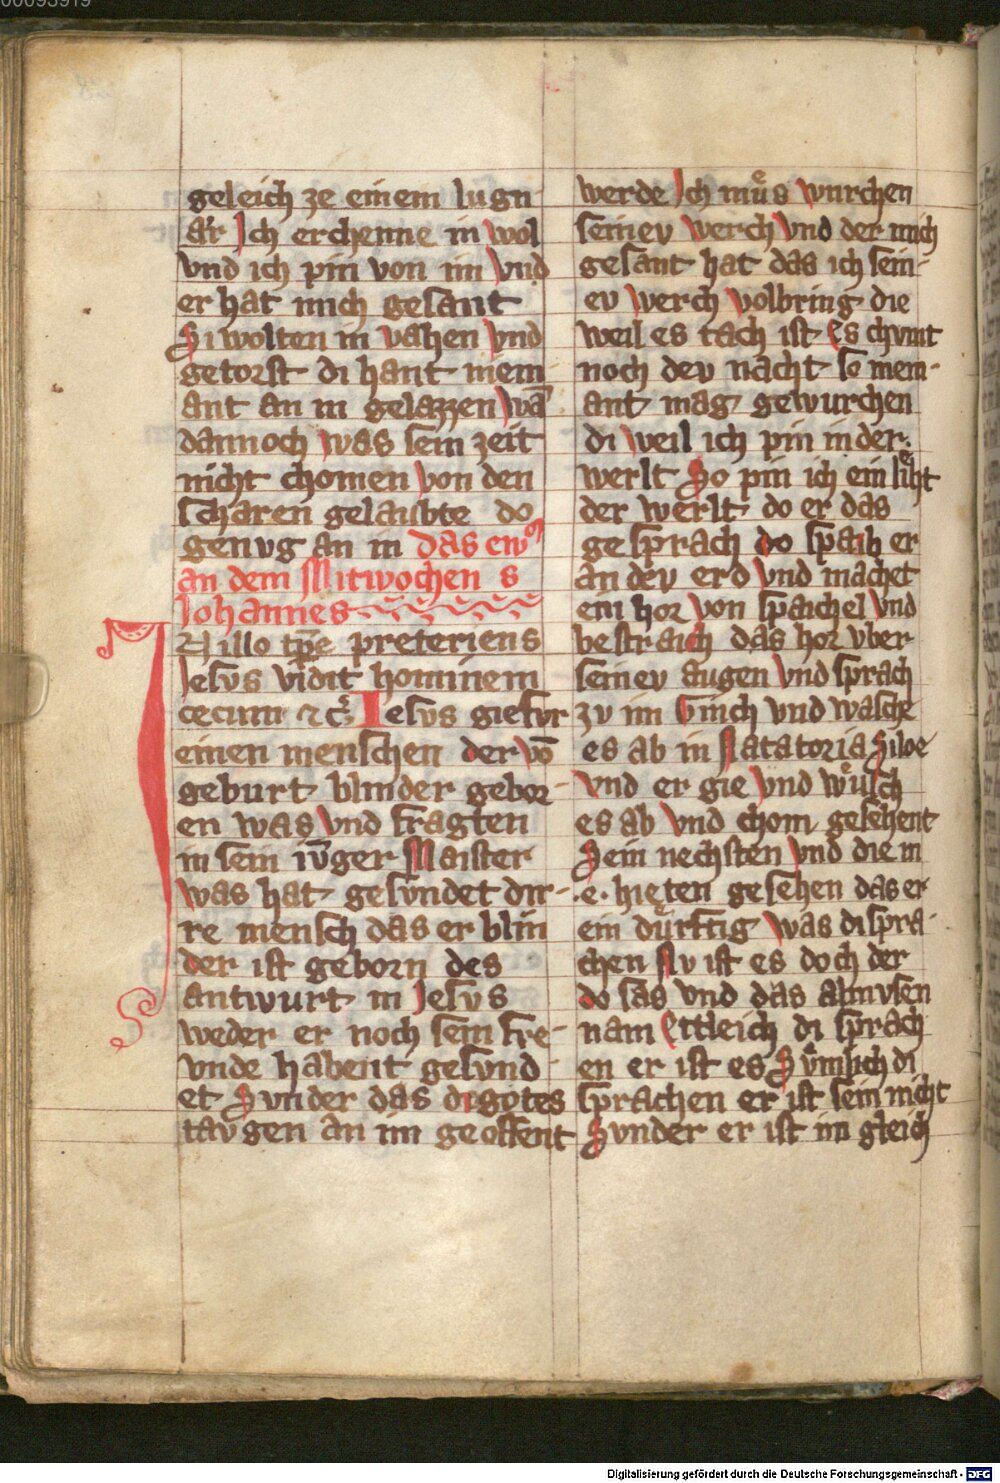 geleich ze einem lugn
ar Ich erchenne in wol
vnd ich pin von im vnd
er hat mich gesant
Si wolten in vahen vnd
getorst di hant niem
ant an in gelazzen wā
dannoch was sein zeit
nicht chomen von den
scharen gelaubte do
genvg an in das ew
an dem Mitwochen s
Johannes
In illo tp̄e preteriens
Jesvs vidit hominem
cecum ⁊ cͥ Iesvs giesvr
einen menschen der vō
geburt blinder gebor-
en was vnd fragten
in sein iūger Maister
was hat gesvndet dir-
re mensch das er blin
der ist geborn des
antwurt in Jesvs
weder er noch sein fre-
vnde habent gesvnd
et Svnder das di gotes
tavgen an im geoffent
werde Ich mů̈s wurchen
seinev werch vnd der mich
gesant hat das ich sein-
ev werch volbring die
weil es tach ist es chvmt
noch dev nacht so niem-
ant mag gewurchen
di weil ich pin in der
werlt So pin ich ein liͤht
der werlt do er das
gesprach do spaih er
an dev erd vnd machet
ein hor von spaichel vnd
bestraich das hor vber
seinev augen vnd sprach
zv im Ginch vnd wasche
es ab in Natatoria Siloe
vnd er gie vnd wůsch
es ab vnd chom gesehent
Sein nechsten vnd die in
.e. hieten gesehen das er
ein dürftig was di spra-
chen Nv ist es doch der
do sas vnd das almvsen
nam ettleich di sprach
en er ist es Svmlich di
sprachen er ist sein nicht
Svnder er ist im gleich
Digitalisierung gefördert durch die Deutsche Forschungsgemeinschaft - DFG